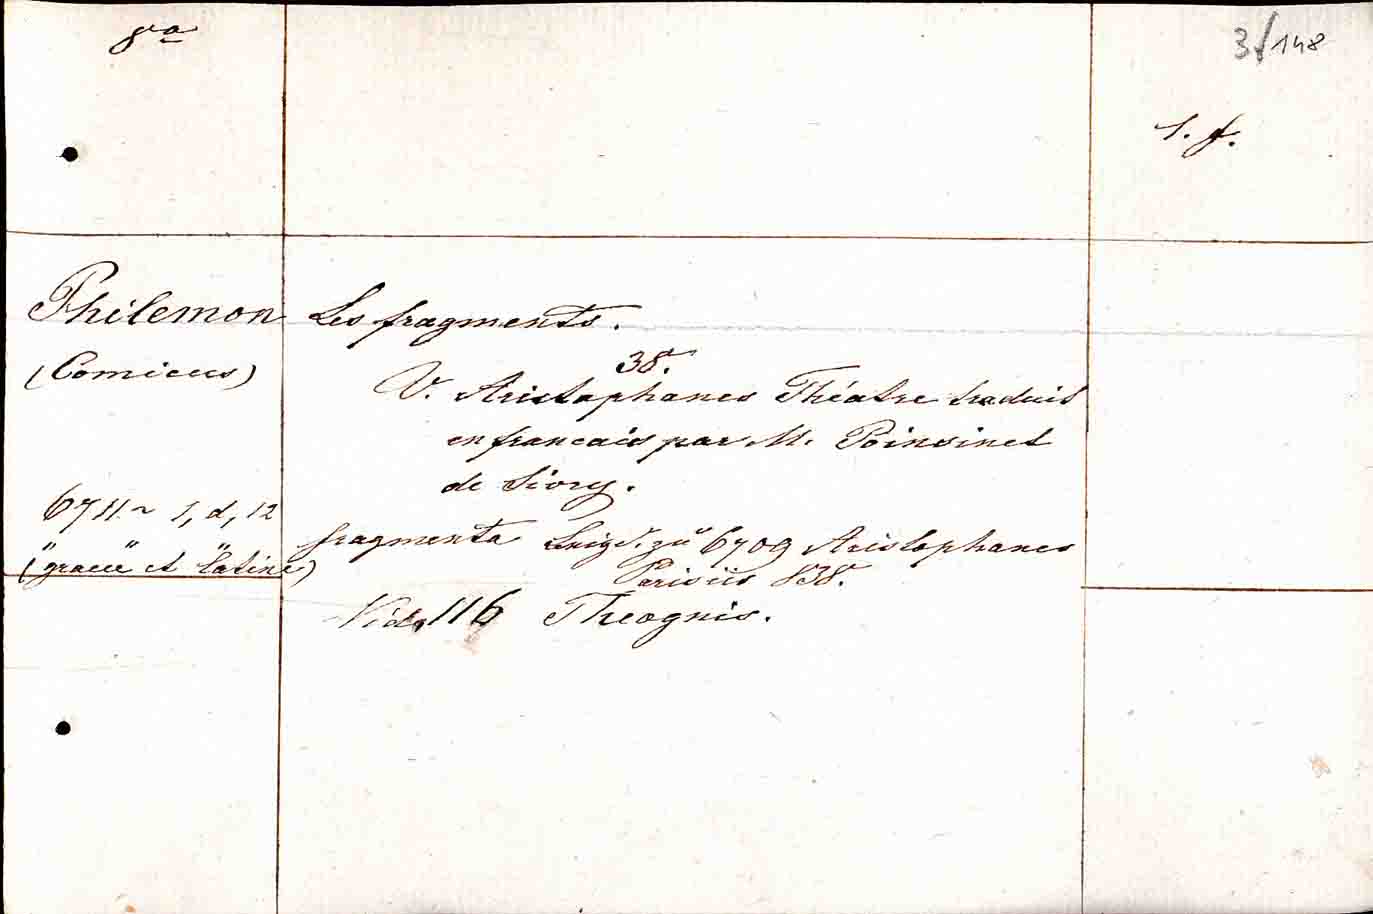 8va
3/148
s. f.
Philemon Les fragments.
(Comicus)
38.
V. Aristophanes Théatre traduit
en francais par M. Poinsinet
de Sivry.
6711 ~ 1, d, 12
fragmenta zu 6709 Aristophanes
(graece et latine) Parisiis 838.
Vid. 116 Theognis.